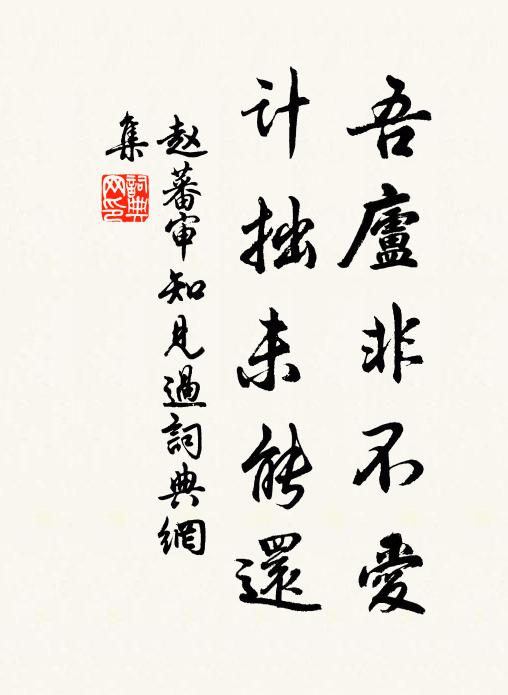 吾廬非不愛
计拙未能還
赵蕃审知見過詞典網
集
詞典网印